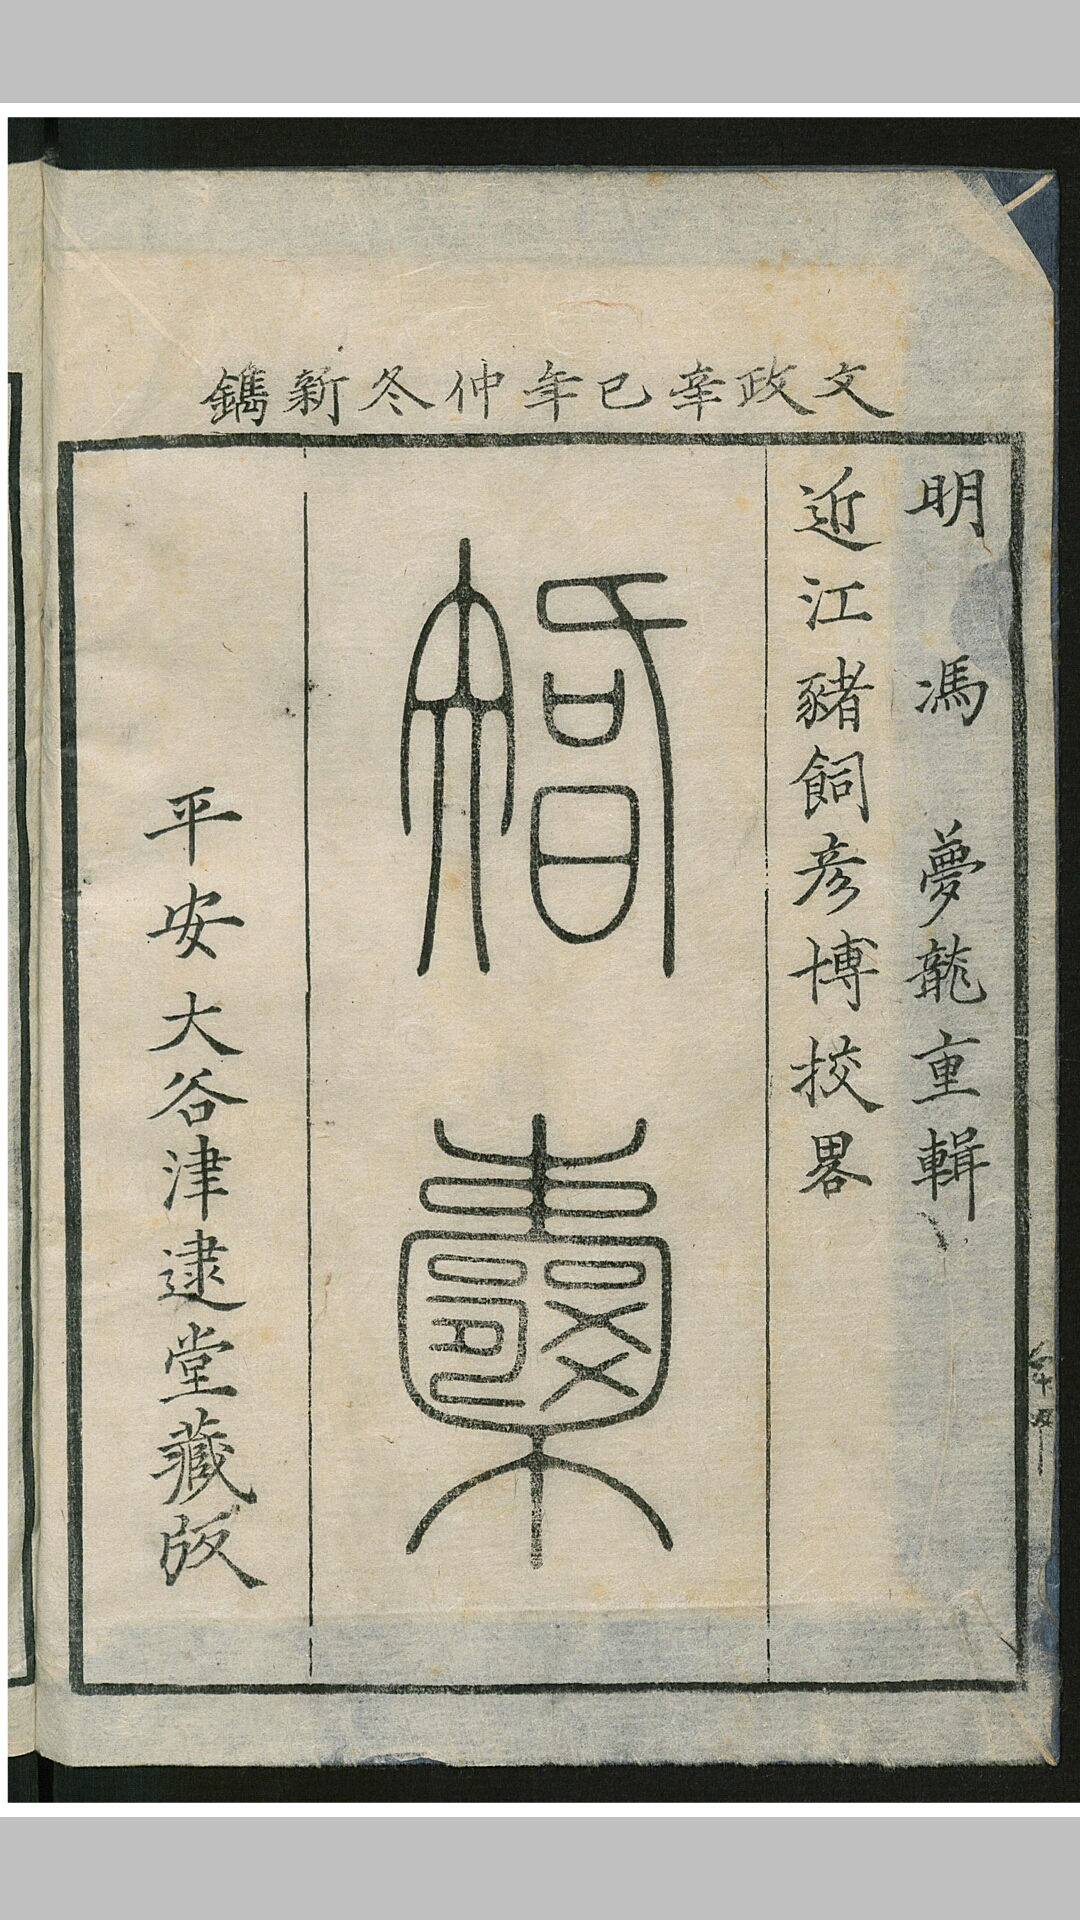 文政辛巳年仲冬新鐫
明 馮 夢龍重輯
近江豬飼彥博挍畧
智囊
平安大谷津逮堂藏版